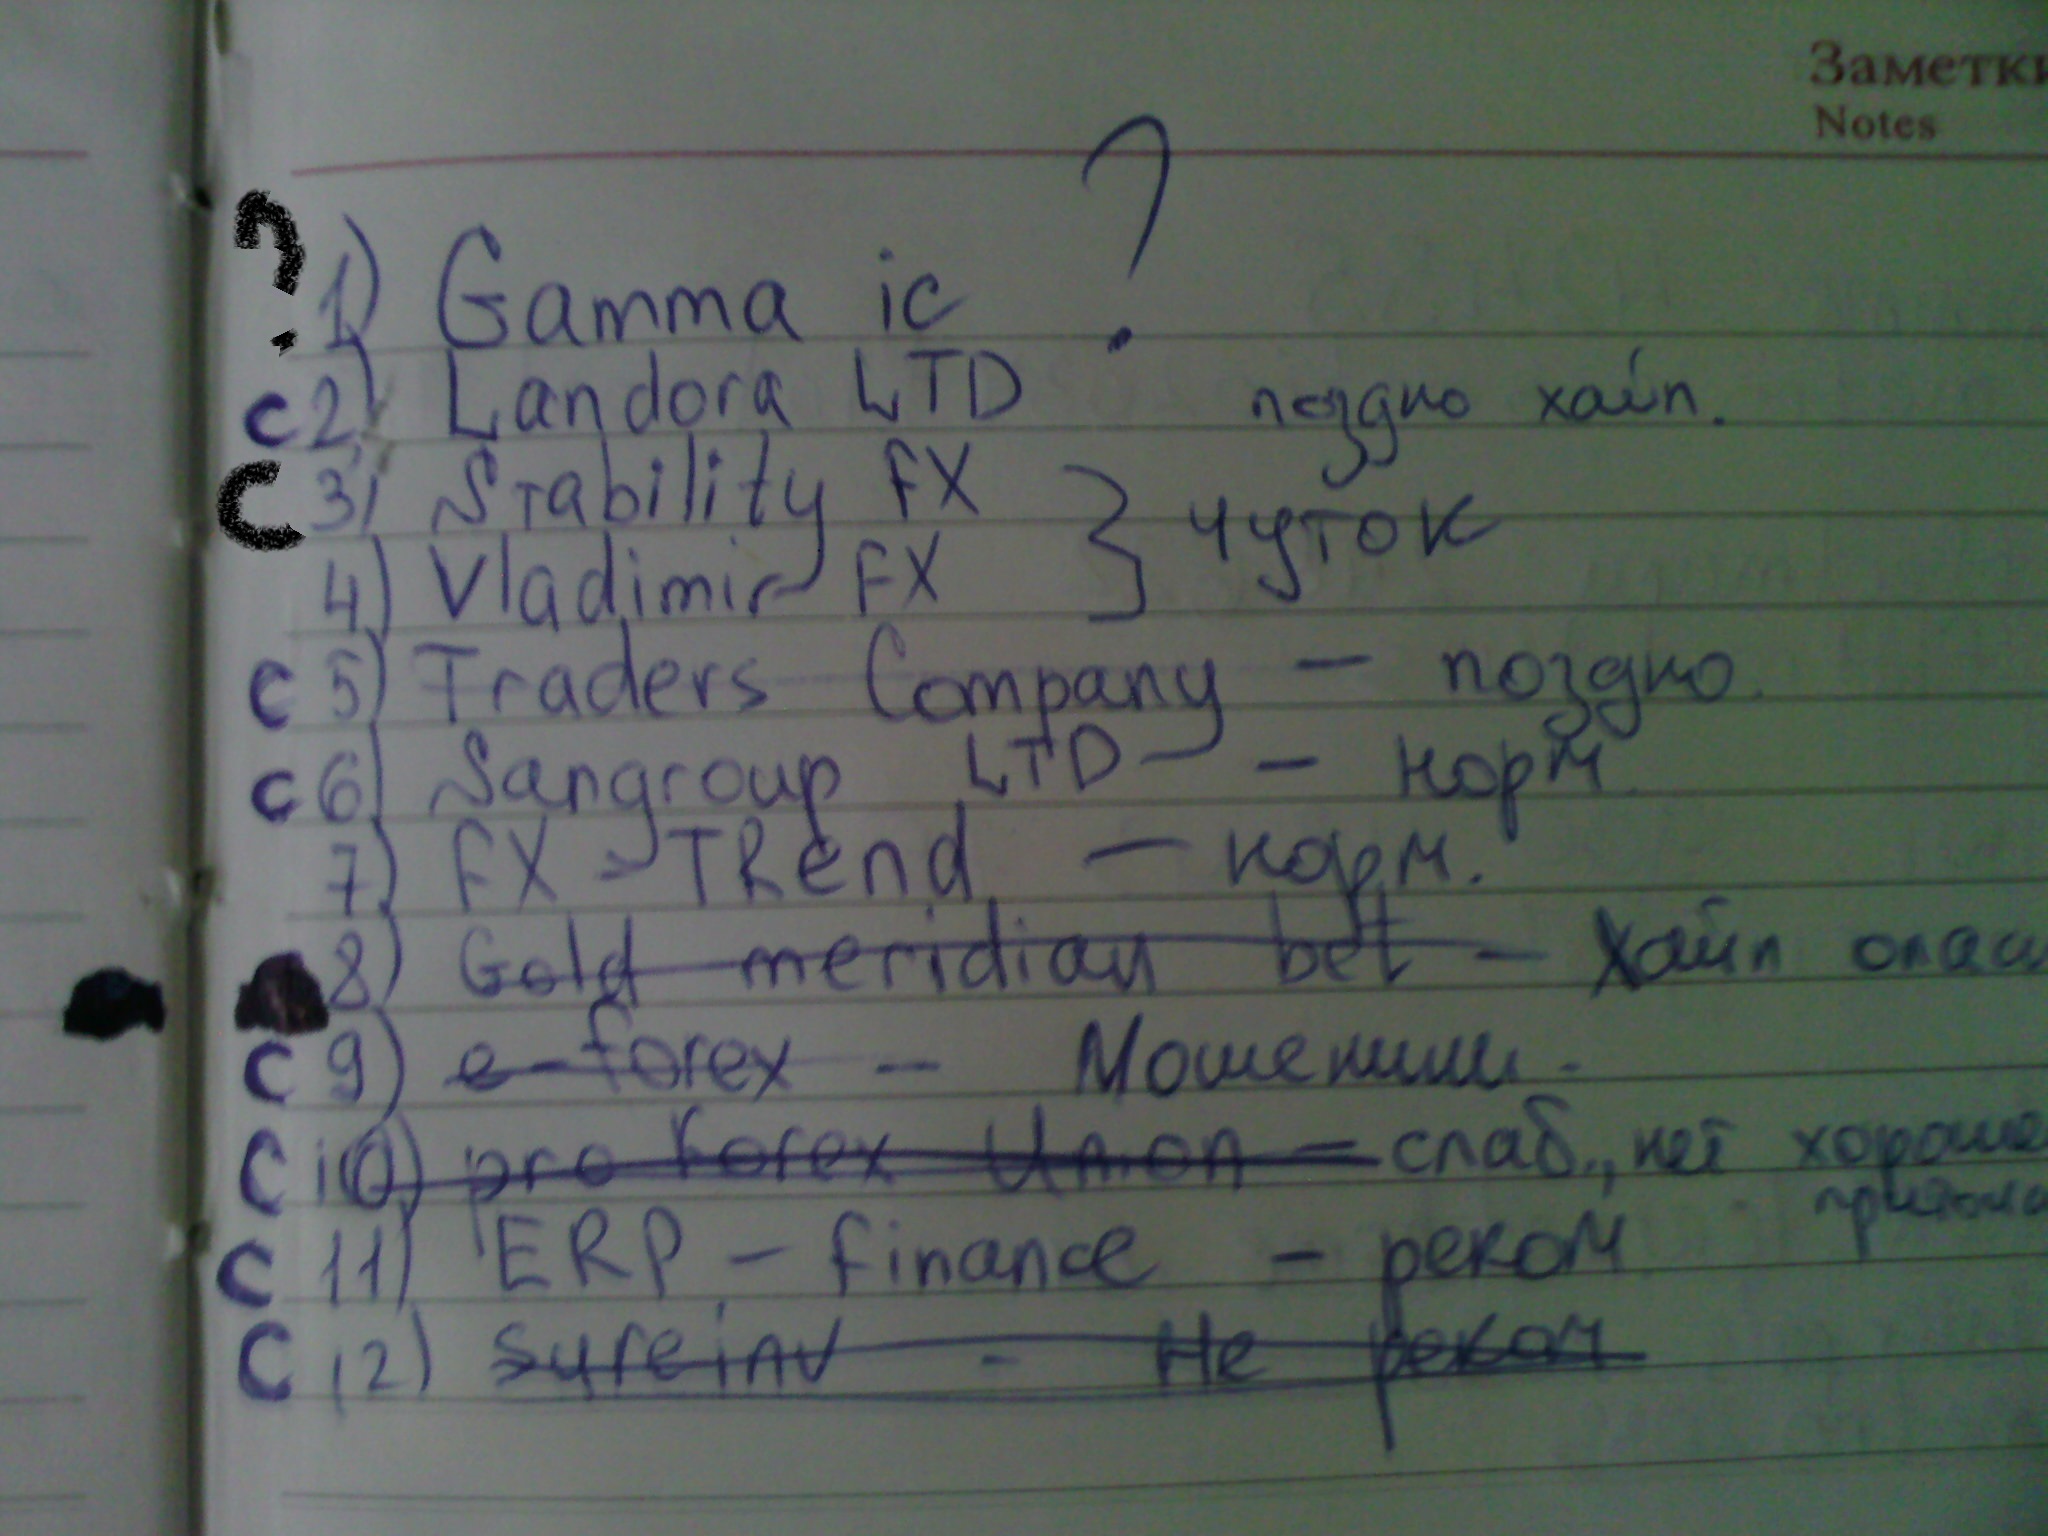 Заметки
Notes
? 1) Gamma ic ?
c 2) Landora LTD поздно хайп.
C 3) Stability FX } чуток
4) Vladimir FX
c 5) Traders Company — поздно.
c 6) Sangroup LTD — норм.
7) FX - TRend — норм.
8) Gold meridian bet — Хайп
c 9) e-forex —
C 10) pro Forex Union — слаб., нет
c 11) ERP - finance - реком
C 12) sureinv - Не реком